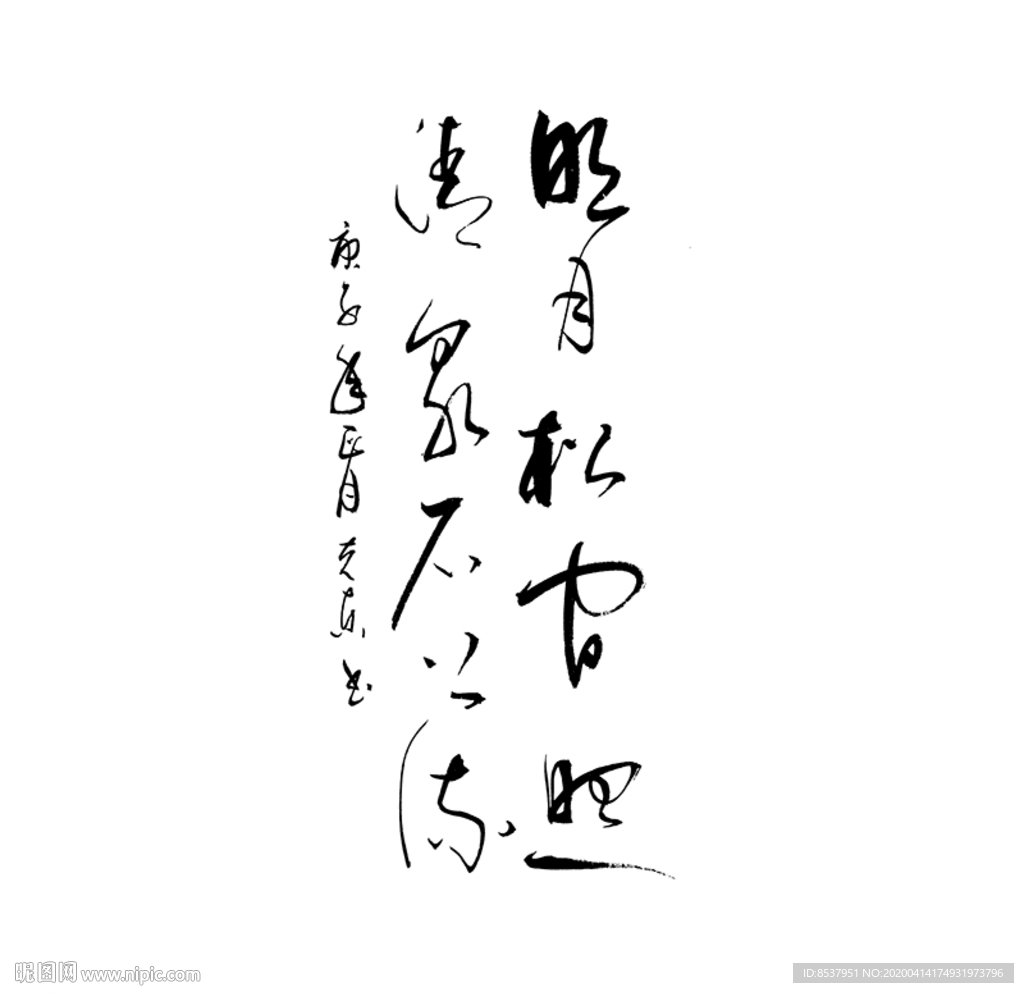 明月松间照
清泉石上流
庚子年正月
书
昵图网 www.nipic.com
ID:8537951 NO:20200414174931973796